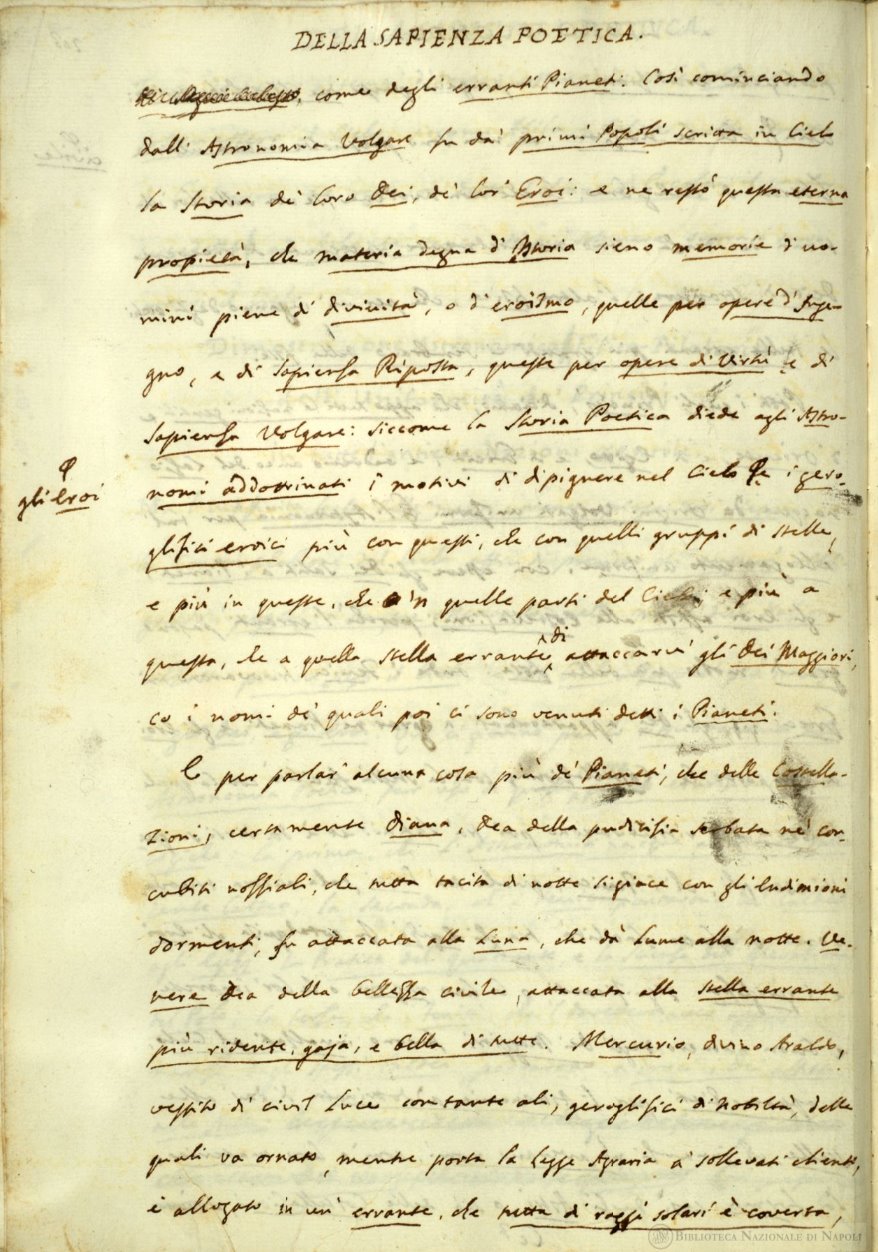 DELLA SAPIENZA POETICA.
come degli erranti Pianeti. Così cominciando
dall' Astronomia Volgare fu da' primi Popoli scritta in Cielo
la Storia de' loro Dei, de' lor' Eroi: e ne restò questa eterna
propietà, che materia degna d' Istoria sieno memorie d' uo-
mini piene di divinità, o d' eroismo, quelle per opere d' Inge-
gno, e di Sapienza Riposta, queste per opere di Virtù e di
Sapienza Volgare: siccome la Storia Poetica diede agli Astro-
nomi addottrinati i motivi di dipignere nel Cielo e i gero-
gli Eroi
glifici eroici più con questi, che con quelli gruppi di stelle,
e più in queste, che 'n quelle parti del Cielo; e più a
questa, che a quella stella errante di attaccarvi gli Dei Maggiori,
co i nomi de' quali poi ci sono venuti detti i Pianeti.
E per parlar' alcuna cosa più de' Pianeti, che delle Costella-
zioni, certamente Diana, Dea della pudicizia serbata ne' con-
cubiti nozziali, che tutta tacita di notte si giace con gli Endimioni
dormenti, fu attaccata alla Luna, che dà lume alla notte. Ve-
nere Dea della bellezza civile, attaccata alla stella errante
più ridente, gaja, e bella di tutte. Mercurio, divino Araldo,
vestito di civil luce con tante ali, geroglifici di Nobiltà, delle
quali va ornato, mentre porta la Legge Agraria a' sollevati clienti,
è allogato in un' errante, che tutta di raggi solari è coverta,
BIBLIOTECA NAZIONALE DI NAPOLI